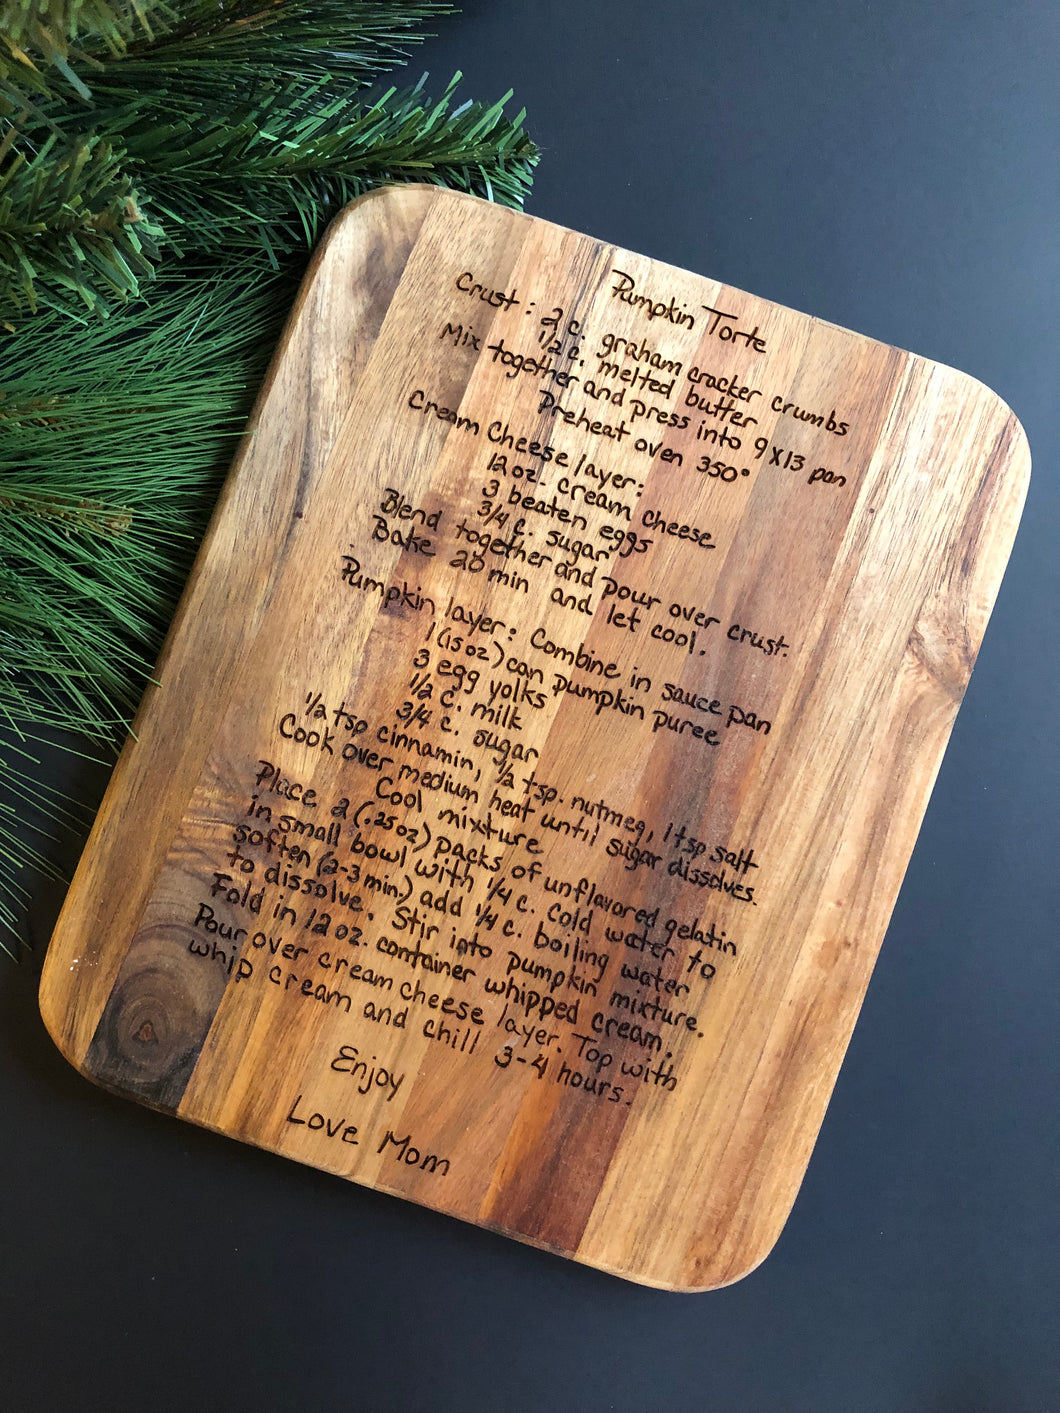 Pumpkin Torte
Crust: 2 c. graham cracker crumbs
1/2 c. melted butter
Mix together and press into 9x13 pan
Preheat oven 350°
Cream Cheese layer:
12 oz. cream cheese
3 beaten eggs
3/4 c. sugar
Blend together and pour over crust.
Bake 20 min and let cool.
Pumpkin layer: Combine in sauce pan
1 (15 oz) can pumpkin puree
3 egg yolks
1/2 c. milk
3/4 c. sugar
1/2 tsp cinnamin, 1/2 tsp. nutmeg, 1 tsp salt
Cook over medium heat until sugar dissolves.
Cool mixture
Place 2 (.25 oz) packs of unflavored gelatin
in small bowl with 1/4 c. cold water to
soften (2-3 min) add 1/4 c. boiling water
to dissolve. Stir into pumpkin mixture.
Fold in 12 oz. container whipped cream.
Pour over cream cheese layer. Top with
whip cream and chill 3-4 hours.
Enjoy
Love Mom